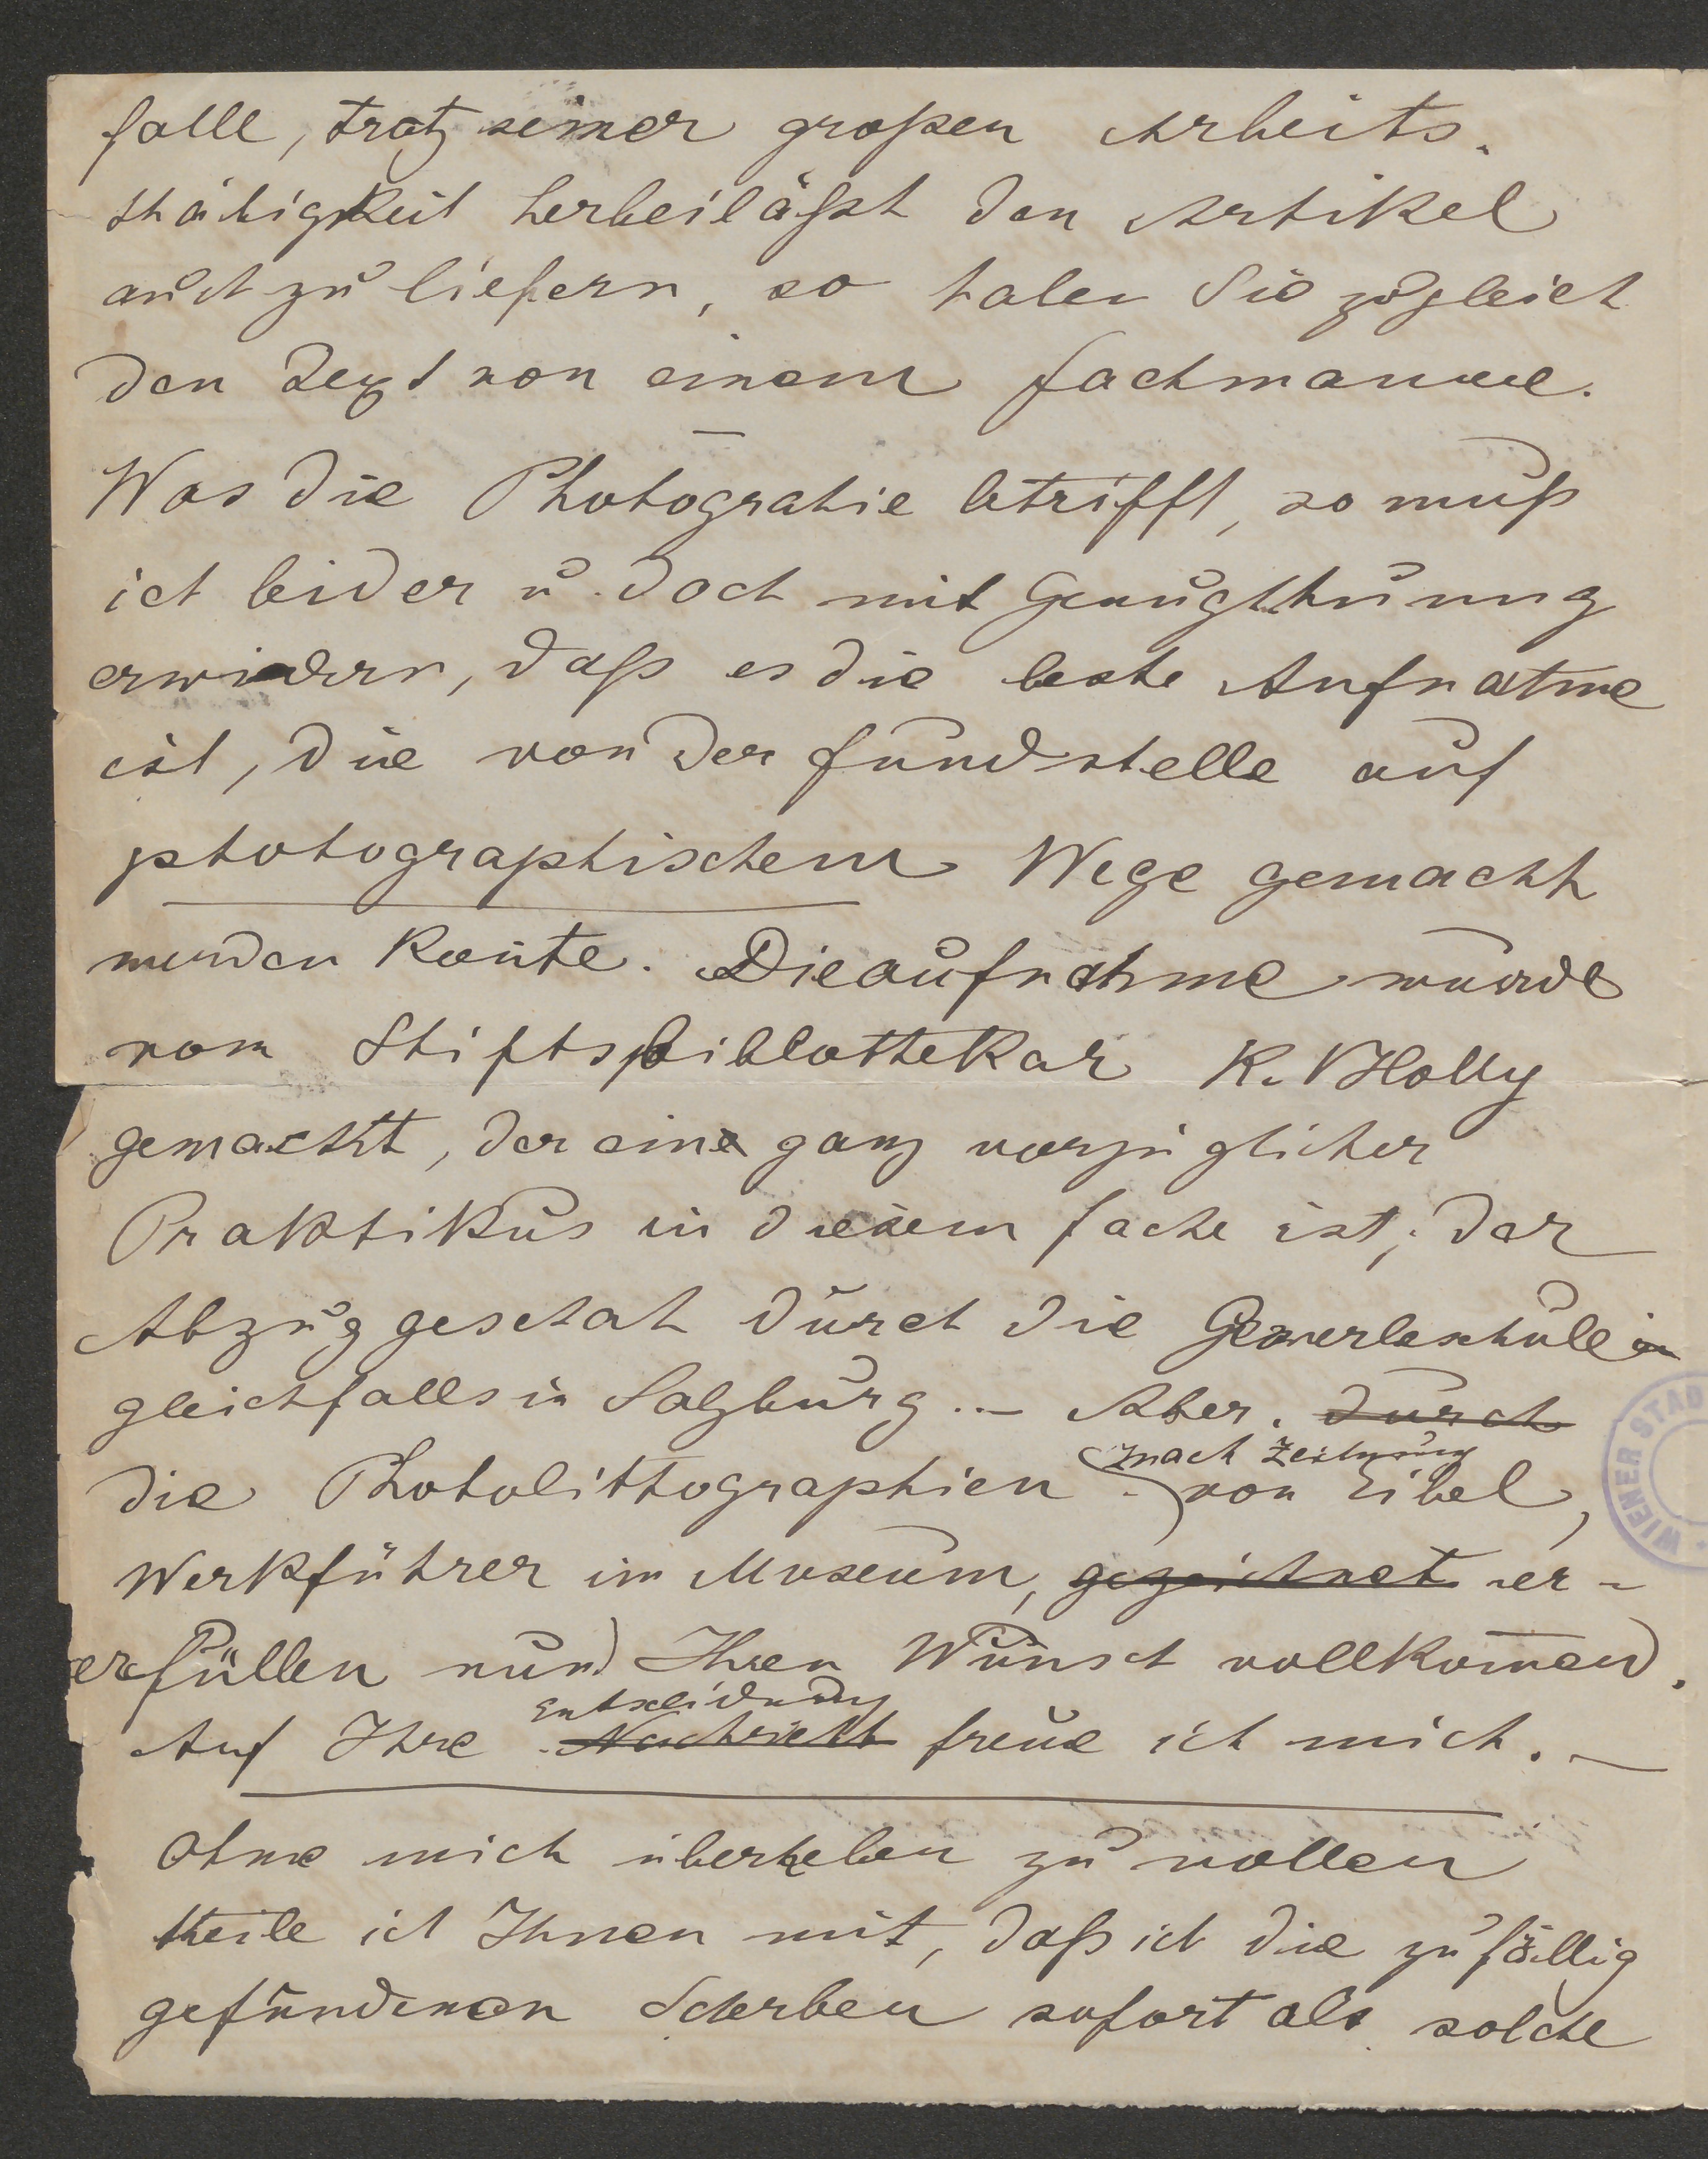 falle, trotz seiner großen Arbeits-
thätigkeit herbeiläßt den Artikel
auch zu liefern, so haben Sie zugleich
den Text von einem Fachmanne.
Was die Photografie betrifft, so muß
ich leider u. doch mit Genugthuung
erwidern, daß es die beste Aufnahme
ist, die von der Fundstelle auf
photographischem Wege gemacht
werden konnte. Die Aufnahme wurde
vom Stiftsbibliothekar K.
gemacht, der ein ganz vorzüglicher
Praktikus in diesem Fache ist; der
Abzug geschah durch die Gewerbeschule in
gleichfalls in Salzburg. – Aber durch
nach Zeichnung
die Photolithographien von Eibel,
Werkführer im Museum, gezeichnet er-
erfüllen nun Ihren Wunsch vollkomen.
Entscheidung
Auf Ihre Nachricht freue ich mich. –
Ohne mich überheben zu wollen
theile ich Ihnen mit, daß ich die zufällig
gefundenen Scherben sofort als solche
WIENER STAD